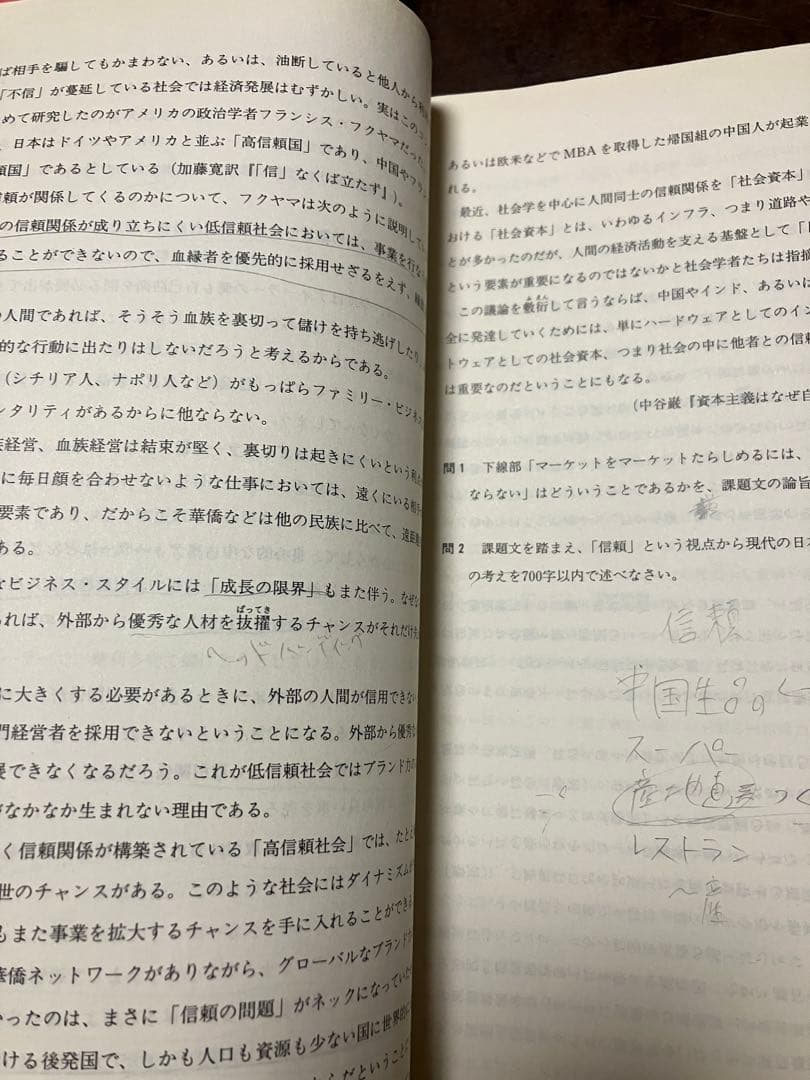 ば相手を騙してもかまわない、あるいは、油断していると他人から
「不信」が蔓延している社会では経済発展はむずかしい。実はこの
めて研究したのがアメリカの政治学者フランシス・フクヤマだった
、日本はドイツやアメリカと並ぶ「高信頼国」であり、中国やフラン
頼国」であるとしている（加藤寛訳『「信」なくば立たず』）。
信頼が関係してくるのかについて、フクヤマは次のように説明してい
の信頼関係が成り立ちにくい低信頼社会においては、事業を行な
ることができないので、血縁者を優先的に採用せざるをえず、
の人間であれば、そうそう血族を裏切って儲けを持ち逃げしたり、
的な行動に出たりはしないだろうと考えるからである。
（シチリア人、ナポリ人など）がもっぱらファミリー・ビジネス
ンタリティがあるからに他ならない。
族経営、血族経営は結束が堅く、裏切りは起きにくいという利点
に毎日顔を合わせないような仕事においては、遠くにいる相手
要素であり、だからこそ華僑などは他の民族に比べて、遠距離
ある。
なビジネス・スタイルには「成長の限界」もまた伴う。なぜな
あれば、外部から優秀な人材を抜擢するチャンスがそれだけ
ばってき
ヘッドハンティング
に大きくする必要があるときに、外部の人間が信用できない
門経営者を採用できないということになる。外部から優秀な
展できなくなるだろう。これが低信頼社会ではブランド力の
がなかなか生まれない理由である。
く信頼関係が構築されている「高信頼社会」では、たとえ
世のチャンスがある。このような社会にはダイナミズムが
もまた事業を拡大するチャンスを手に入れることができる
華僑ネットワークがありながら、グローバルなブランド力
かったのは、まさに「信頼の問題」がネックになっていた
ける後発国で、しかも人口も資源も少ない国に世界的に
だということに
あるいは欧米などでMBAを取得した帰国組の中国人が起業
れる。
最近、社会学を中心に人間同士の信頼関係を「社会資本」
おける「社会資本」とは、いわゆるインフラ、つまり道路や
とが多かったのだが、人間の経済活動を支える基盤として「
という要素が重要になるのではないかと社会学者たちは指摘
この議論を敷衍して言うならば、中国やインド、あるいは
全に発達していくためには、単にハードウェアとしてのイン
トウェアとしての社会資本、つまり社会の中に他者との信頼
は重要なのだということにもなる。
（中谷巌『資本主義はなぜ自
問1 下線部「マーケットをマーケットたらしめるには、
ならない」はどういうことであるかを、課題文の論旨
問2 課題文を踏まえ、「信頼」という視点から現代の日本
の考えを700字以内で述べなさい。
信頼
中国生
スーパー
産地直
レストラン
〜産